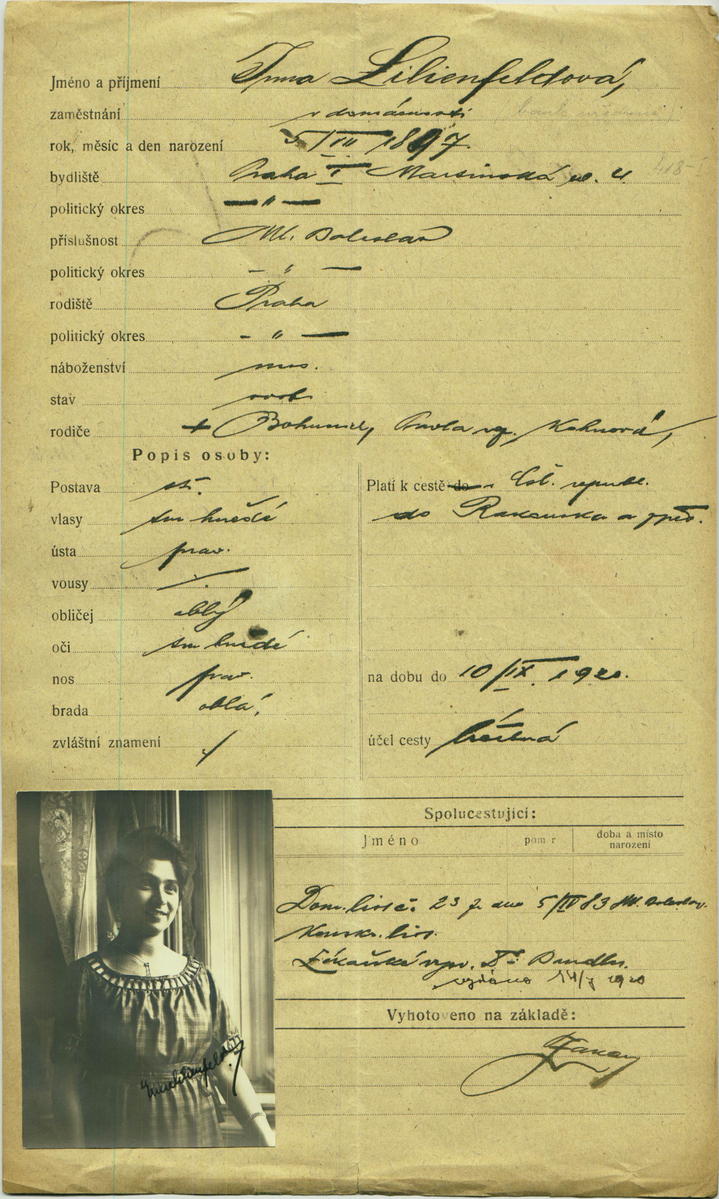 Jméno a příjmení Irma Lilienfeldová,
zaměstnání v domácnosti
rok, měsíc a den narození 5/III 1897.
bydliště Praha I Martinská ul. 4.
politický okres — " —
příslušnost Ml. Boleslav
politický okres — " —
rodiště Praha
politický okres - " —
náboženství mos.
stav svob.
rodiče + Bohumil, Pavla Kohnová,
Popis osoby:
Postava stř. Platí k cestě do v Čsl. republ.
vlasy tm hnědé do Rakouska a zpět.
ústa prav.
vousy /.
obličej oblý
oči tm hnědé
nos prav. na dobu do 10/IX. 1920.
brada oblá.
zvláštní znamení / účel cesty léčebná
Spolucestující:
Jméno poměr doba a místo
narození
Dom. list č. 23 z dne 5/IV 83 Ml. Boleslav.
Lékařské vysv. Dr
vydáno 14/7 1920
Vyhotoveno na základě: